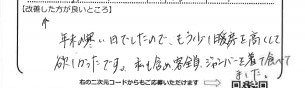 【改善した方が良いところ】
年末の寒い日でしたので、もう少し暖房を高くして
欲しかったです。私も含め客全員、ジャンパーを着て食べて
ました。
右の二次元コードからもご応募いただけます